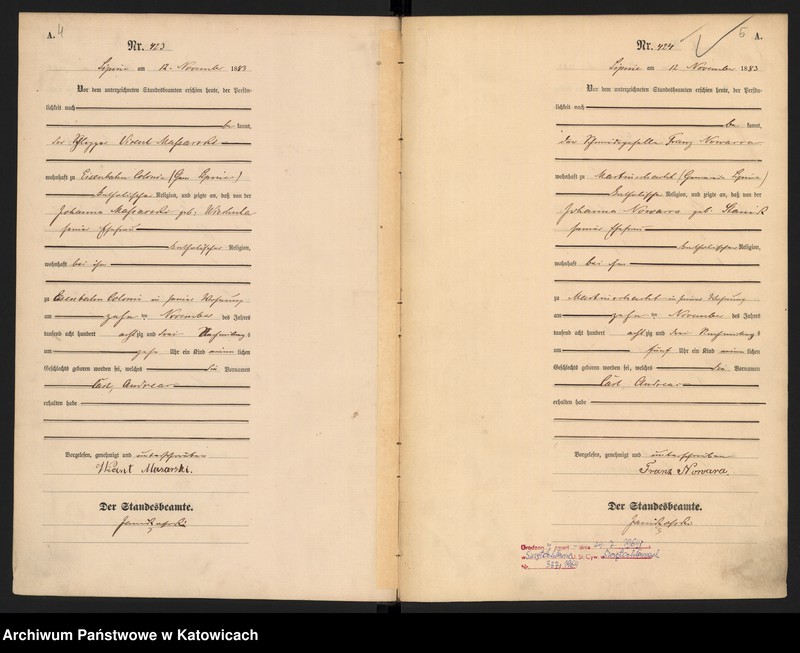 A. 4
Nr. 423
Lipine am 12. November 1883
Vor dem unterzeichneten Standesbeamten erschien heute, der Persön-
lichkeit nach
be kannt,
der Schlepper
wohnhaft zu Eisenbahn Colonie (Gem. Lipine)
katholischer Religion, und zeigte an, daß von der
Johanna geb.
seiner Ehefrau
katholischer Religion,
wohnhaft bei ihm
zu Eisenbahn Colonie in seiner Wohnung
am zehnten November des Jahres
tausend acht hundert achtzig und drei Nachmittags
um zehn Uhr ein Kind männlichen
Geschlechts geboren worden sei, welches die Vornamen
Carl, Andreas
erhalten habe
Vorgelesen, genehmigt und unterschrieben
Masarski.
Der Standesbeamte.
5 A.
Nr. 424
Lipine am 12. November 1883
Vor dem unterzeichneten Standesbeamten erschien heute, der Persön-
lichkeit nach
be kannt,
der Franz Nowarra
wohnhaft zu Martinschacht (Gemeinde Lipine)
katholischer Religion, und zeigte an, daß von der
Johanna Nowara geb.
seiner Ehefrau
katholischer Religion,
wohnhaft bei ihm
zu Martinschacht in seiner Wohnung
am zehnten November des Jahres
tausend acht hundert achtzig und drei Nachmittags
um fünf Uhr ein Kind männlichen
Geschlechts geboren worden sei, welches die Vornamen
Carl, Andreas
erhalten habe
Vorgelesen, genehmigt und unterschrieben
Franz Nowara.
Der Standesbeamte.
Archiwum Państwowe w Katowicach